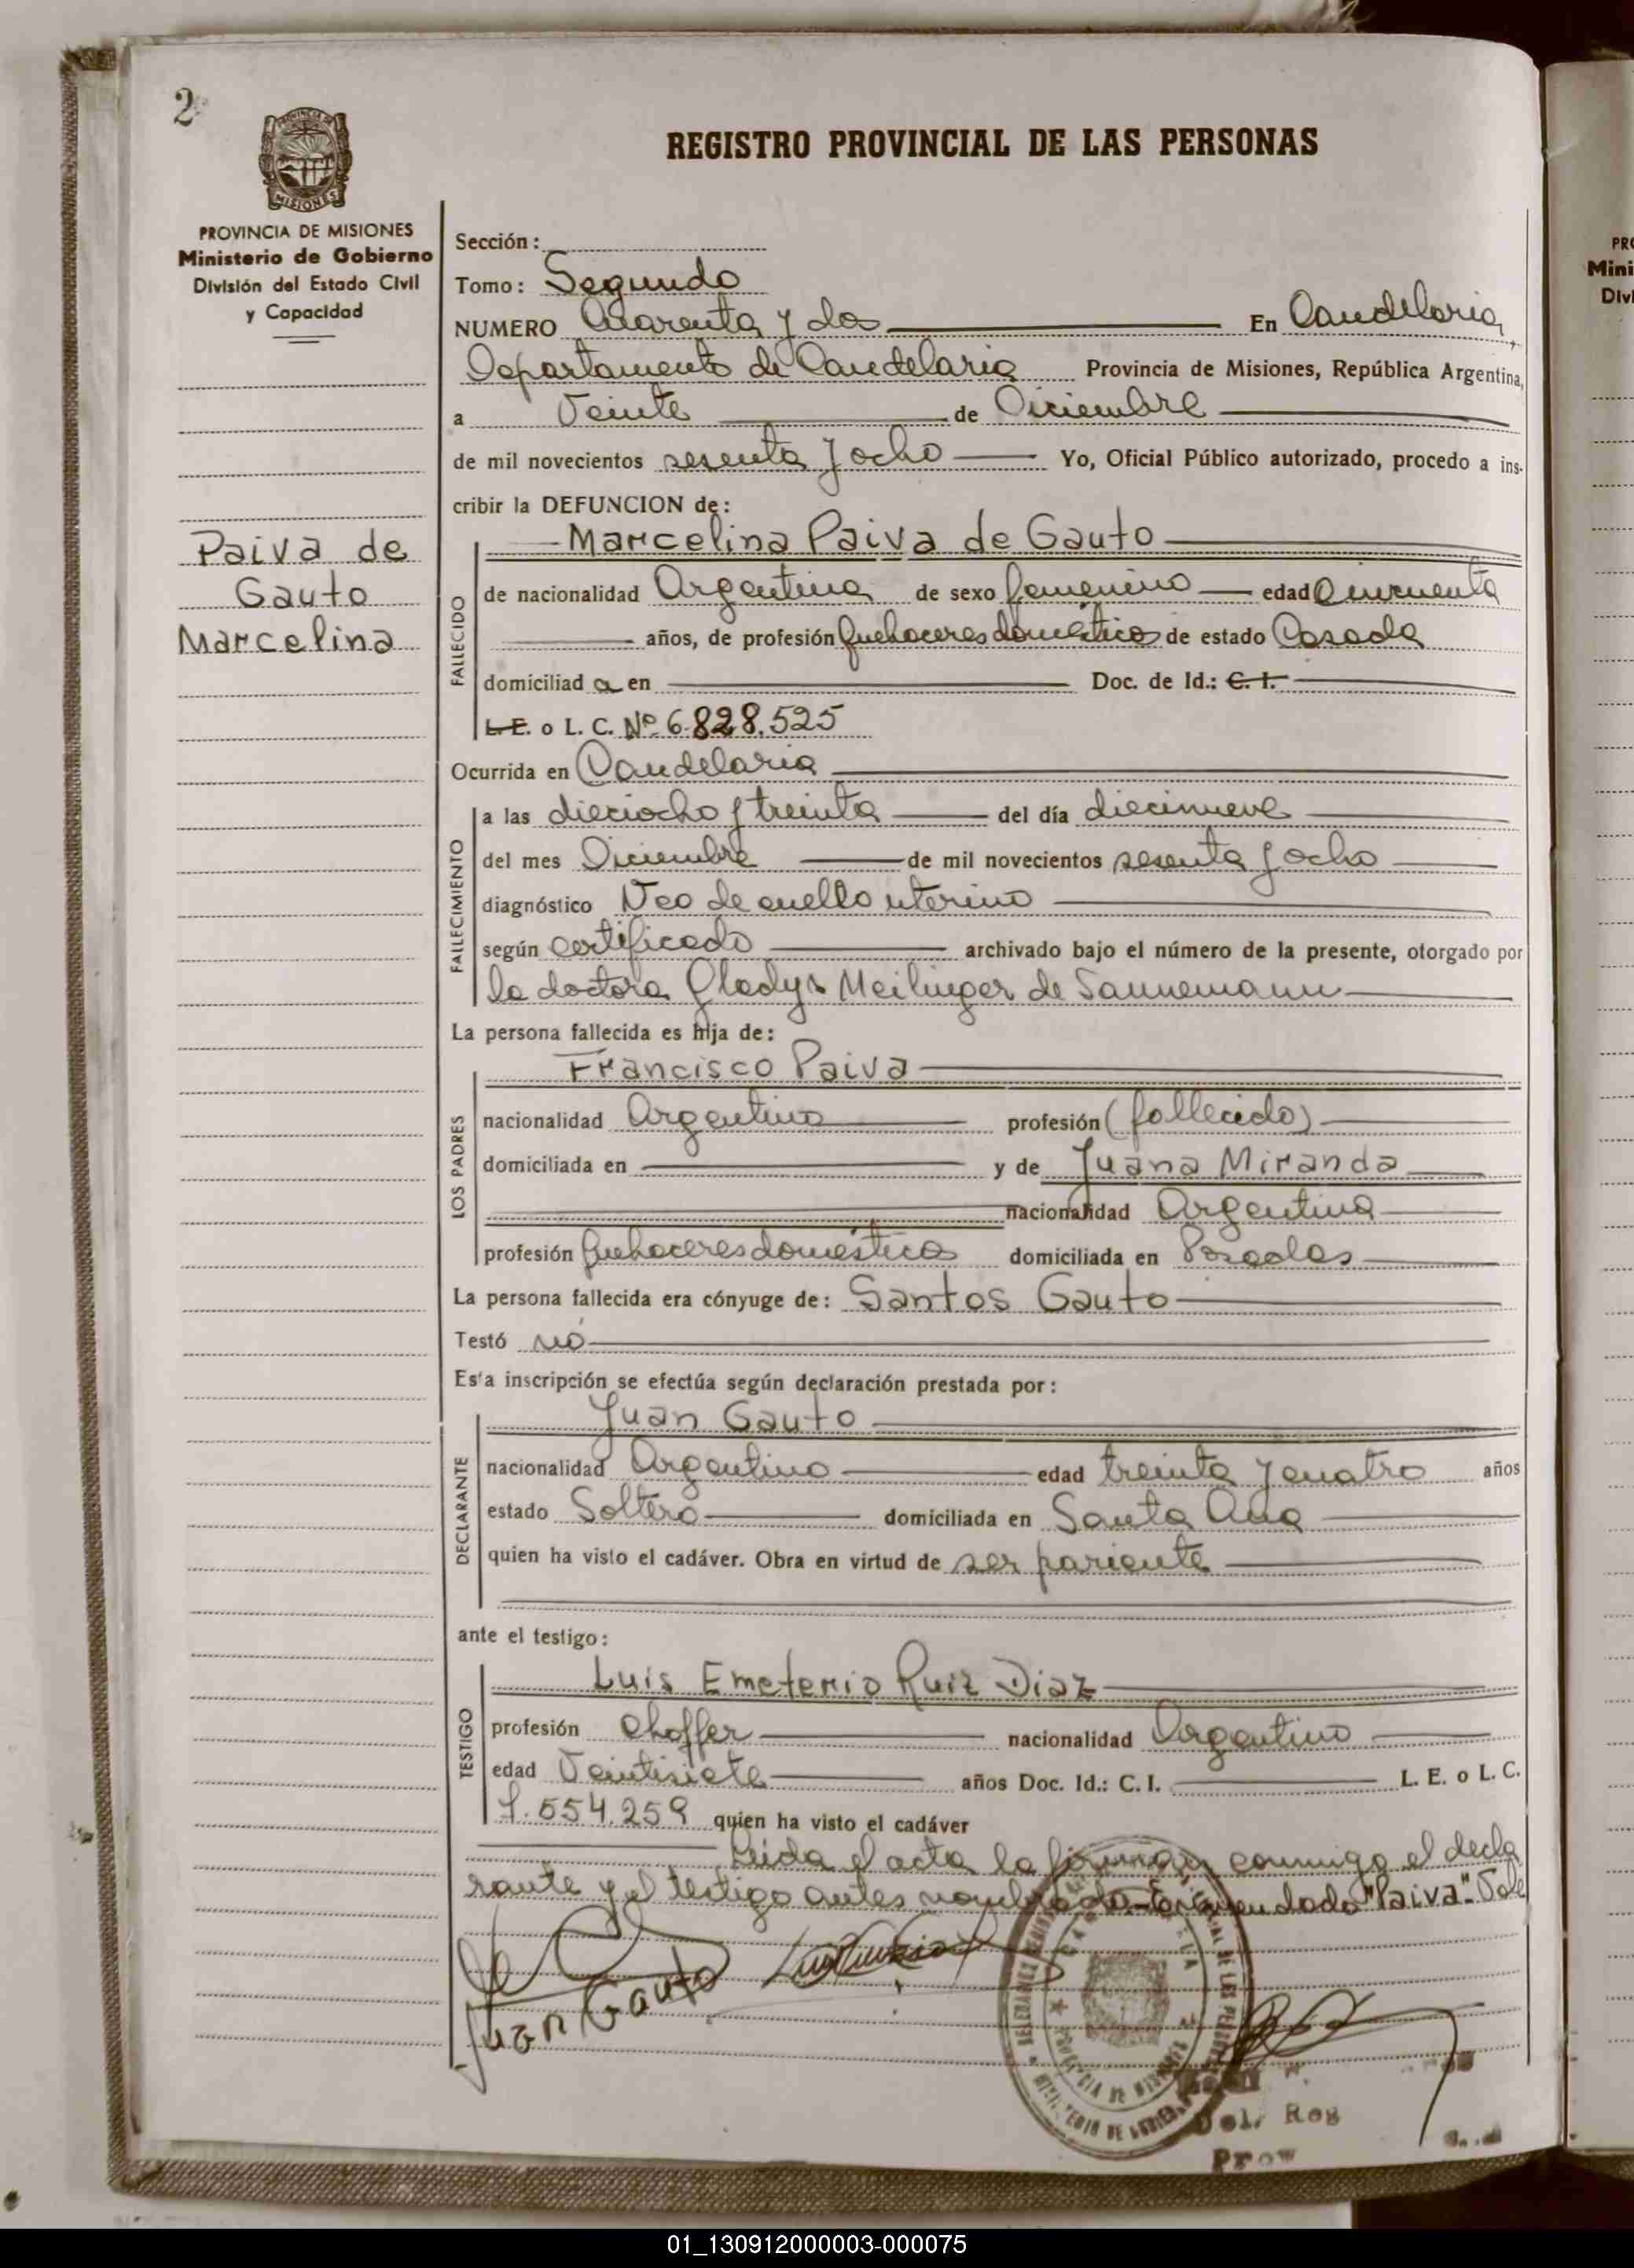 2
REGISTRO PROVINCIAL DE LAS PERSONAS
PROVINCIA DE MISIONES
Ministerio de Gobierno
División del Estado Civil
y Capacidad
Paiva de
Gauto
Marcelina
Sección:
Tomo: Segundo
NUMERO Cuarenta y dos En Candelaria,
Departamento de Candelaria Provincia de Misiones, República Argentina,
a Veinte de Diciembre
de mil novecientos sesenta y ocho Yo, Oficial Público autorizado, procedo a ins-
cribir la DEFUNCION de:
Marcelina Paiva de Gauto
FALLECIDO
de nacionalidad Argentina de sexo femenino edad Cincuenta
años, de profesión quehaceres domésticos de estado Casada
domiciliad a en Doc. de Id.: C. I.
L. E. o L. C. Nº 6.828.525
Ocurrida en Candelaria
FALLECIMIENTO
a las dieciocho y treinta del día diecinueve
del mes Diciembre de mil novecientos sesenta y ocho
diagnóstico Neo de cuello uterino
según certificado archivado bajo el número de la presente, otorgado por
la doctora Gladys Meilinger de Sannemann
La persona fallecida es hija de:
Francisco Paiva
LOS PADRES
nacionalidad Argentino profesión (fallecido)
domiciliada en y de Juana Miranda
nacionalidad Argentina
profesión quehaceres domésticos domiciliada en Posadas
La persona fallecida era cónyuge de: Santos Gauto
Testó nó
Esta inscripción se efectúa según declaración prestada por:
Juan Gauto
DECLARANTE
nacionalidad Argentino edad treinta y cuatro años
estado Soltero domiciliada en Santa Ana
quien ha visto el cadáver. Obra en virtud de ser pariente
ante el testigo:
Luis Emeterio Ruiz Diaz
TESTIGO
profesión choffer nacionalidad Argentino
edad Veintisiete años Doc. Id.: C. I. L. E. o L. C.
7.554.259 quien ha visto el cadáver
Leida el acta la firman conmigo el decla
rante y el testigo antes nombrado-Enmendado "Paiva"-Vale
Juan Gauto
PROVINCIA DE MISIONES
Del. Reg
Prov
PRO
Mini
Divi
01_130912000003-000075